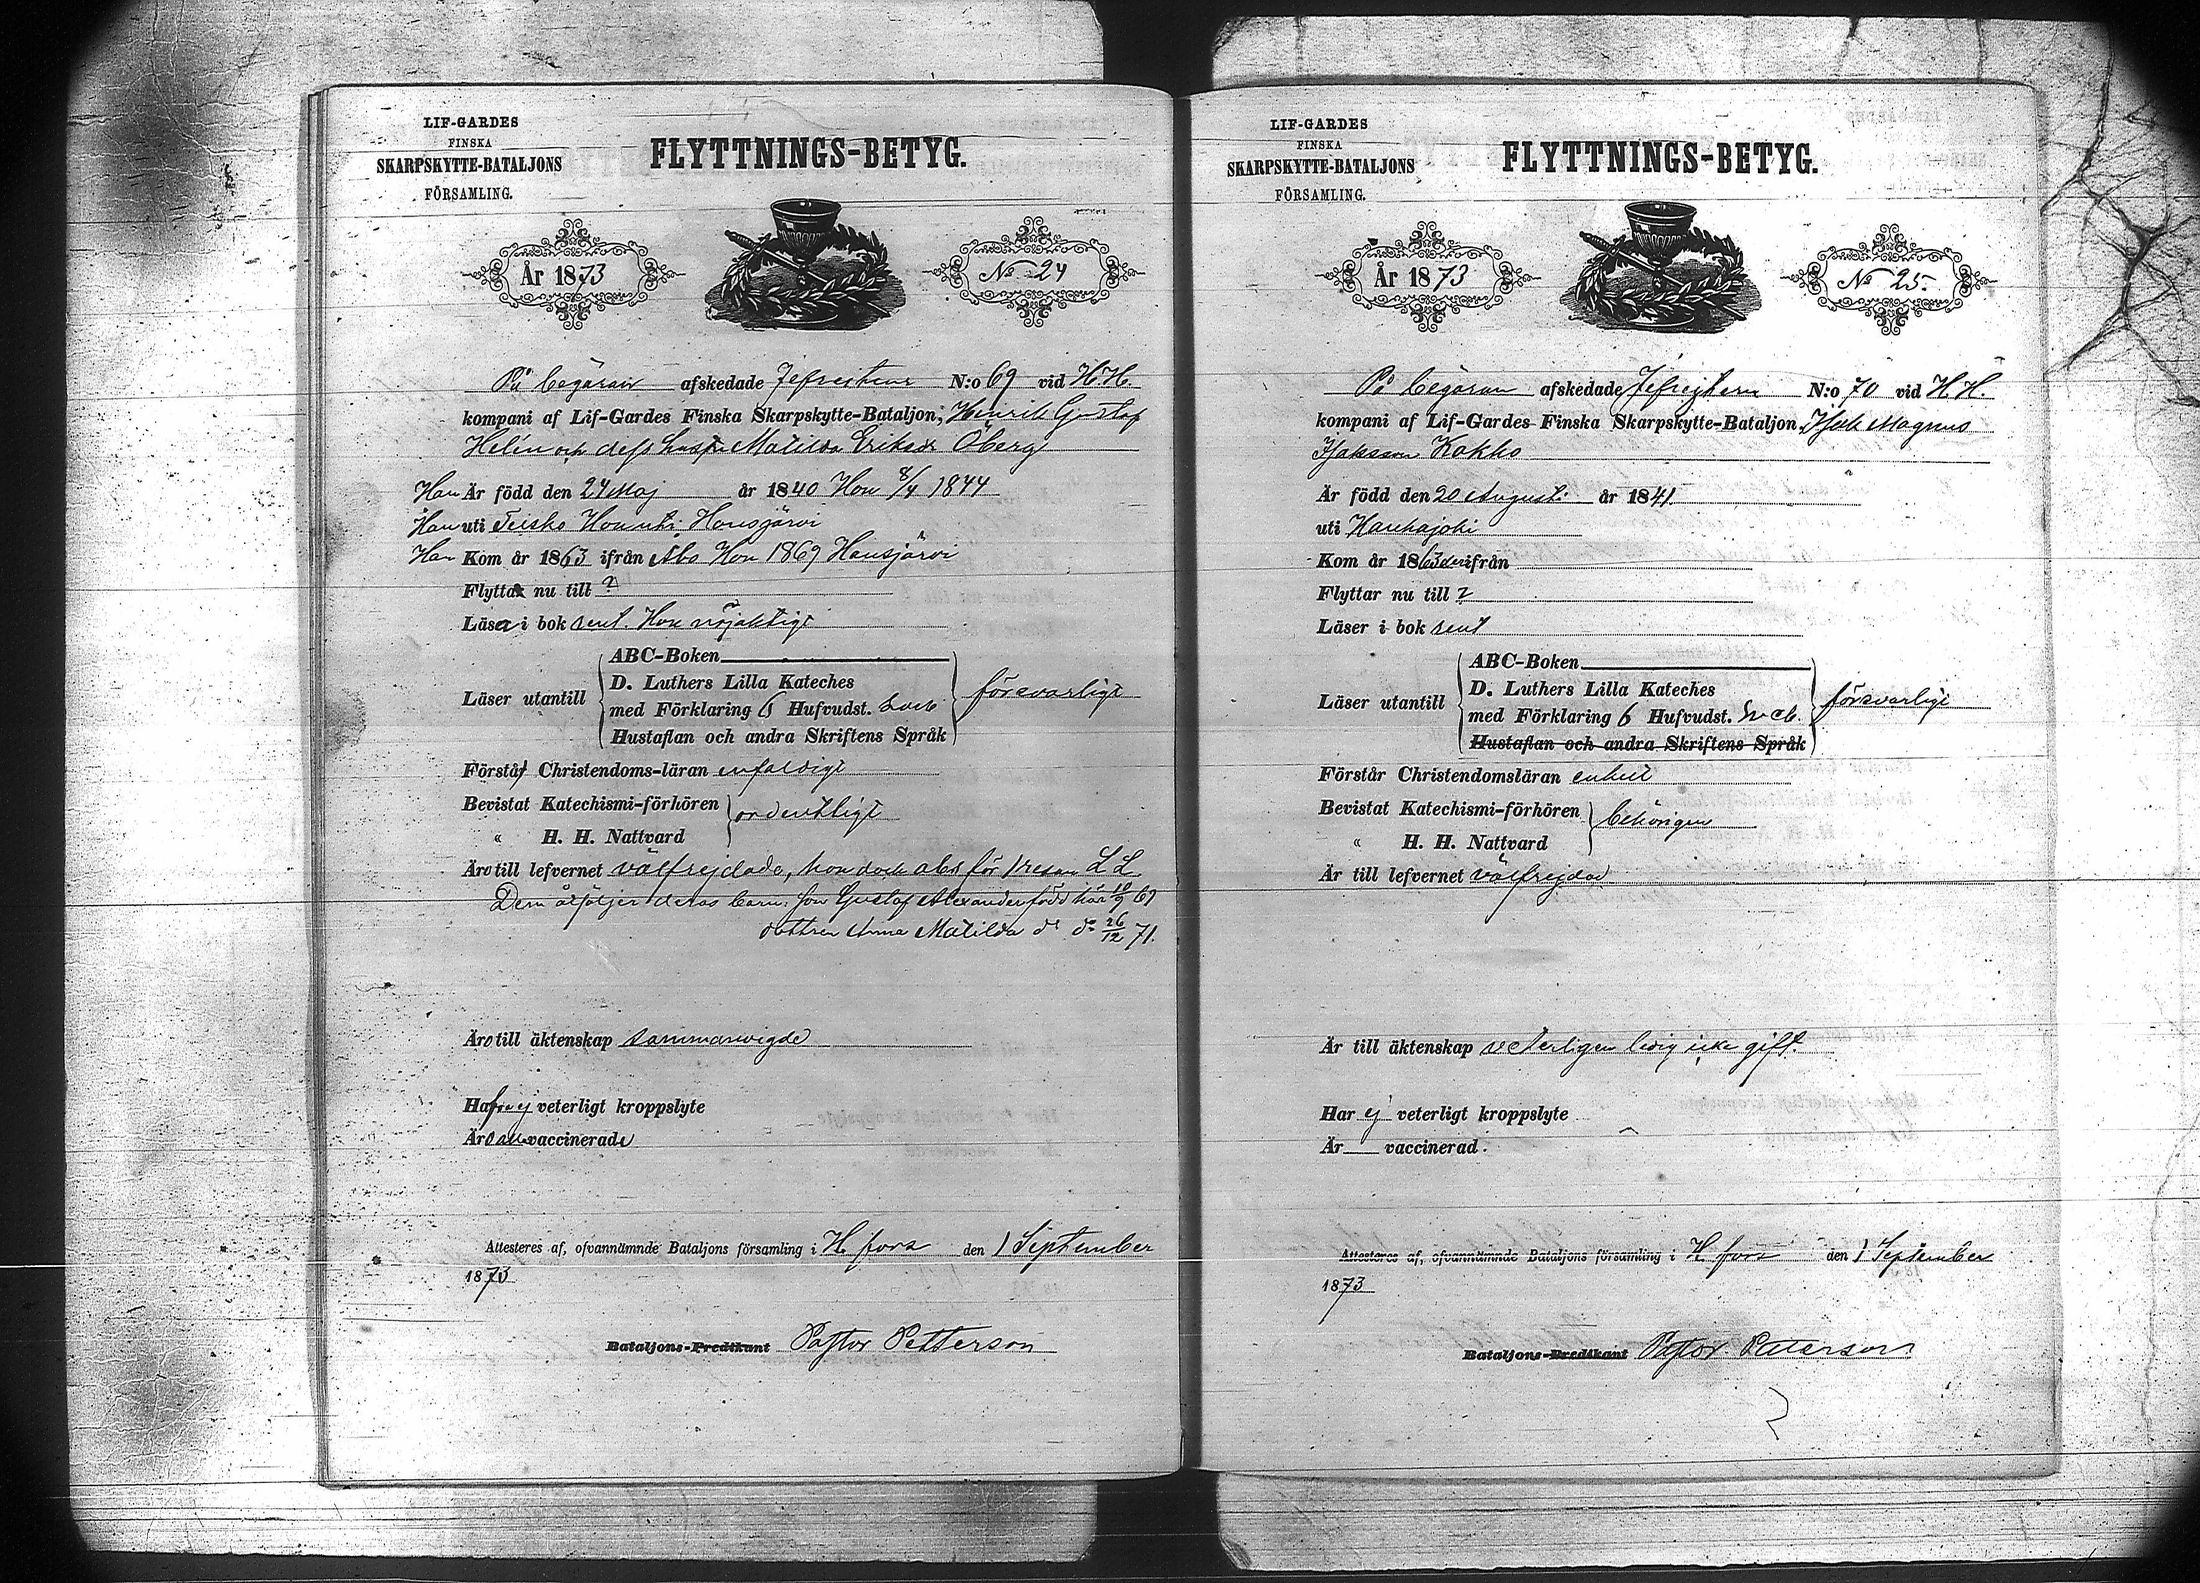 LIF-GARDES
FINSKA
SKARPSKYTTE-BATALJONS
FÖRSAMLING.
FLYTTNINGS-BETYG.
År 1873
No 24
På begäran afskedade Jefreiteur N:o 69 vid H.H.
kompani af Lif-Gardes Finska Skarpskytte-Bataljon, Henrik Gustaf
Helin och dess hustru Matilda Eriksdr Öberg
Han Är född den 24 Maj år 1840 Hon 8/4 1844
Han uti Teisko Hon uti Hausjärvi
Han Kom år 1863 ifrån Åbo Hon 1869 Hausjärvi
Flytta nu till ?
Läsa i bok rent. Hon nöjaktigt
ABC-Boken
D. Luthers Lilla Kateches
Läser utantill
med Förklaring 6 Hufvudst. och försvarligt
Hustaflan och andra Skriftens Språk
Förstå Christendoms-läran enfaldigt
Bevistat Katechismi-förhören ordentligt
« H. H. Nattvard
Äro till lefvernet välfrejdade, hon dock abs för 1 resan L L
Dem åtföljer deras barn: son Gustaf Alexander född här 10/9 69
dottren Anna Matilda do do 26/12 71.
Äro till äktenskap sammanvigde
Hafva ej veterligt kroppslyte
Äro alla vaccinerade
Attesteres af, ofvannämnde Bataljons församling i H.fors den 1 September
1873
Bataljons-Predikant Pastor Petterson
LIF-GARDES
FINSKA
SKARPSKYTTE-BATALJONS
FÖRSAMLING.
FLYTTNINGS-BETYG.
År 1873
No 25.
På begäran afskedade Jefrejtern N:o 70 vid H.H.
kompani af Lif-Gardes Finska Skarpskytte-Bataljon, Isak Magnus
Isaksson Kokko
Är född den 20 Augusti år 1841.
uti Kauhajoki
Kom år 1863 derifrån
Flyttar nu till ?
Läser i bok rent
ABC-Boken
D. Luthers Lilla Kateches
Läser utantill
med Förklaring 6 Hufvudst. och försvarligt
Hustaflan och andra Skriftens Språk
Förstår Christendomsläran enkelt
Bevistat Katechismi-förhören behörigen
« H. H. Nattvard
Är till lefvernet välfrejdad
Är till äktenskap veterligen ledig icke gift.
Har ej veterligt kroppslyte
Är vaccinerad.
Attesteres af, ofvannämnde Bataljons församling i H.fors den 1 September
1873
Bataljons-Predikant Pastor Petterson